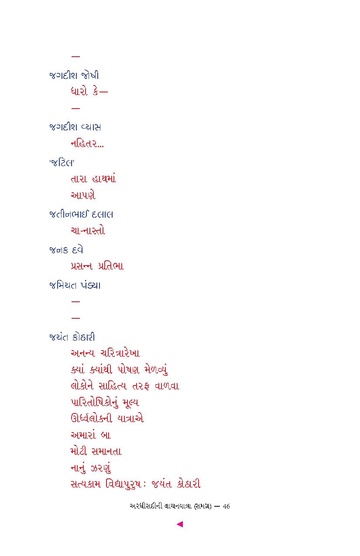 —
જગદીશ જોષી
ધારો કે—
—
જગદીશ વ્યાસ
નહિતર...
'જટિલ'
તારા હાથમાં
આપણે
જતીનભાઈ દલાલ
ચા-નાસ્તો
જનક દવે
પ્રસન્ન પ્રતિભા
જમિયત પંડ્યા
—
—
જયંત કોઠારી
અનન્ય ચરિત્રારેખા
ક્યાં ક્યાંથી પોષણ મેળવ્યું
લોકોને સાહિત્ય તરફ વાળવા
પારિતોષિકોનું મૂલ્ય
ઊર્ધ્વલોકની યાત્રાએ
અમારાં બા
મોટી સમાનતા
નાનું ઝરણું
સત્યકામ વિદ્યાપુરુષ : જયંત કોઠારી
અરધીસદીની વાચનયાત્રા (સમગ્ર) — 46